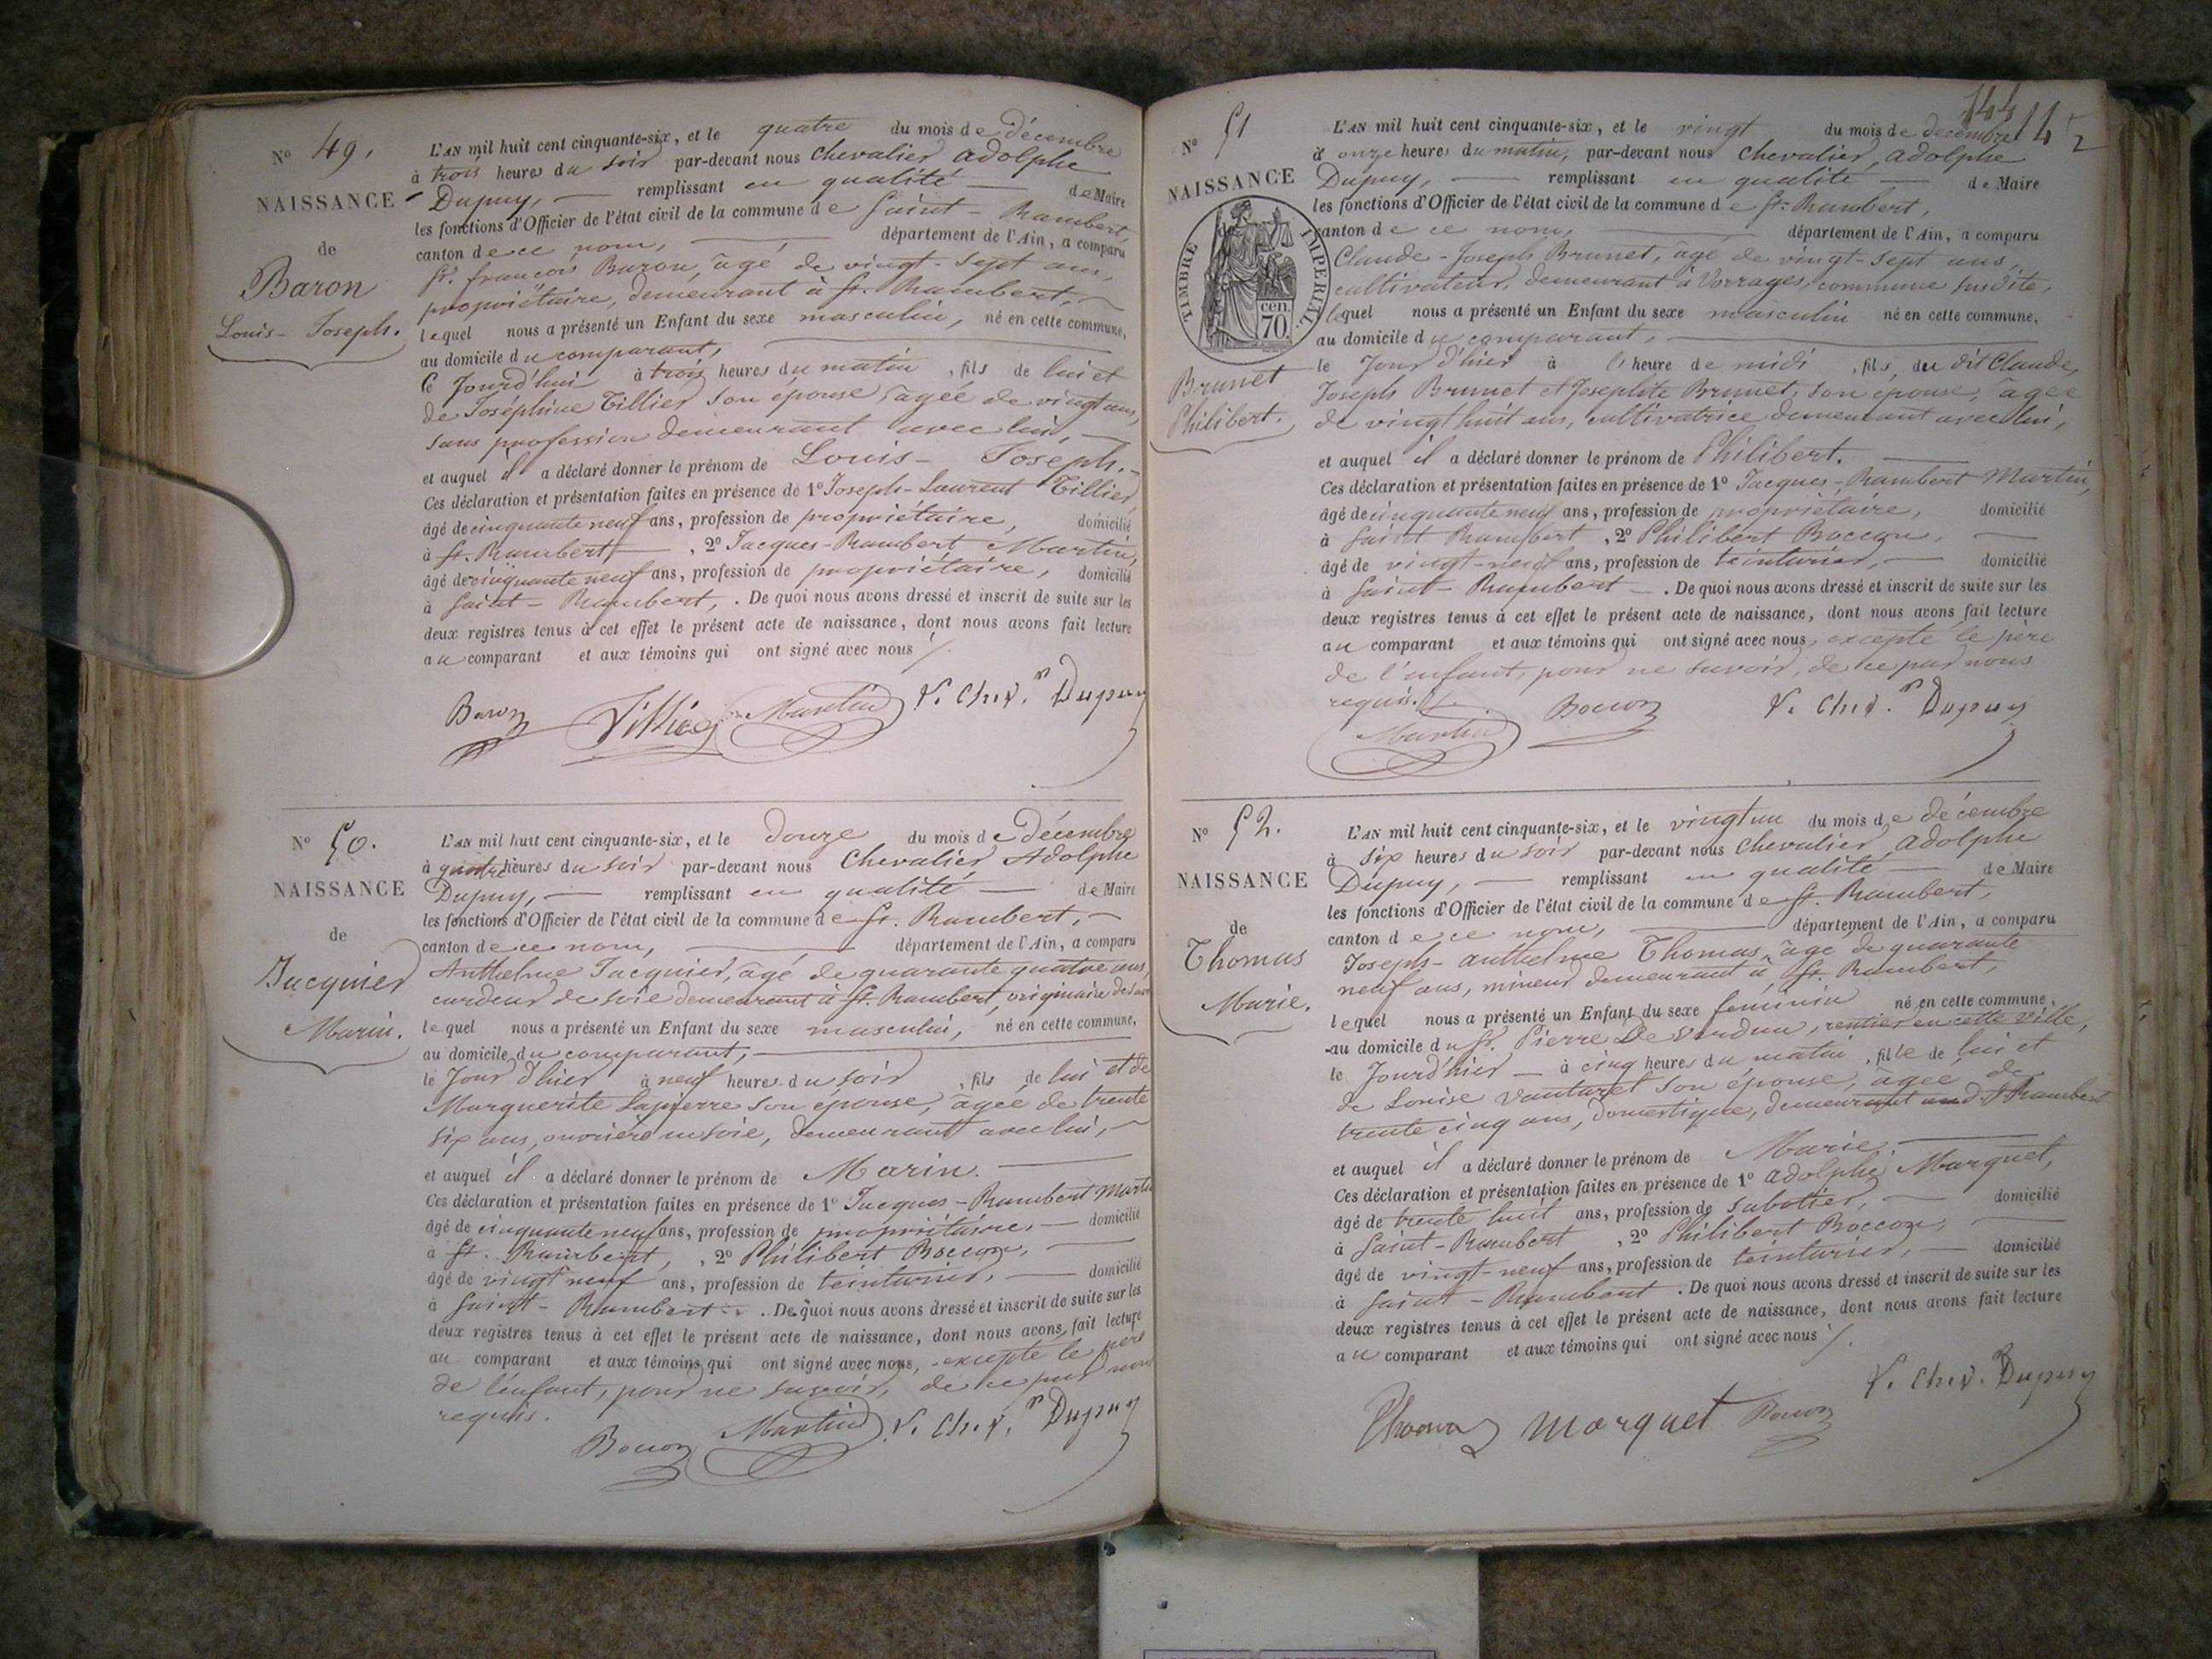 N° 49.
NAISSANCE
de
Baron
Louis-Joseph.
L'AN mil huit cent cinquante-six, et le quatre du mois de décembre
à trois heures du soir par-devant nous Chevalier Adolphe
Dupuy, remplissant en qualité de Maire
les fonctions d'Officier de l'état civil de la commune de Saint-Rambert,
canton de ce nom, département de l'Ain, a comparu
Sr. françois Baron, âgé de vingt-sept ans,
propriétaire, demeurant à St. Rambert,
lequel nous a présenté un Enfant du sexe masculin, né en cette commune,
au domicile du comparant,
Ce Jourd'hui à trois heures du matin, fils de lui et
de Joséphine Tillier son épouse âgée de vingt ans,
sans profession demeurant avec lui,
et auquel il a déclaré donner le prénom de Louis-Joseph.
Ces déclaration et présentation faites en présence de 1° Joseph-Laurent Tillier,
âgé de cinquante neuf ans, profession de propriétaire, domicilié
à St. Rambert, 2° Jacques-Rambert Martin,
âgé de cinquante neuf ans, profession de propriétaire, domicilié
à Saint-Rambert, . De quoi nous avons dressé et inscrit de suite sur les
deux registres tenus à cet effet le présent acte de naissance, dont nous avons fait lecture
au comparant et aux témoins qui ont signé avec nous /.
Baron Tillier Martin V. Chev.r Dupuy
N° 50.
NAISSANCE
de
Jacquier
Marin.
L'AN mil huit cent cinquante-six, et le douze du mois de décembre
à quatre heures du soir par-devant nous Chevalier Adolphe
Dupuy, remplissant en qualité de Maire
les fonctions d'Officier de l'état civil de la commune de St. Rambert,
canton de ce nom, département de l'Ain, a comparu
Anthelme Jacquier, âgé de quarante quatre ans,
cardeur de soie demeurant à St. Rambert, originaire
lequel nous a présenté un Enfant du sexe masculin, né en cette commune,
au domicile du comparant,
le Jour d'hier à neuf heures du soir, fils de lui et de
Marguerite Lapierre son épouse, âgée de trente
six ans, ouvrière en soie, demeurant avec lui,
et auquel il a déclaré donner le prénom de Marin.
Ces déclaration et présentation faites en présence de 1° Jacques-Rambert Martin
âgé de cinquante neuf ans, profession de propriétaire, domicilié
à St. Rambert, , 2° Philibert Boccon,
âgé de vingt neuf ans, profession de teinturier, domicilié
à Saint-Rambert . De quoi nous avons dressé et inscrit de suite sur les
deux registres tenus à cet effet le présent acte de naissance, dont nous avons fait lecture
au comparant et aux témoins qui ont signé avec nous, excepté le père
de l'enfant, pour ne savoir, de ce par nous
requis.
Boccon Martin V. Chev.r Dupuy
144
N° 51
NAISSANCE
TIMBRE IMPERIAL.
70 cen.
Brunet
Philibert.
L'AN mil huit cent cinquante-six, et le vingt du mois de décembre
à onze heures du matin, par-devant nous Chevalier Adolphe
Dupuy, remplissant en qualité de Maire
les fonctions d'Officier de l'état civil de la commune de St. Rambert,
canton de ce nom, département de l'Ain, a comparu
Claude-Joseph Brunet, âgé de vingt-sept ans,
cultivateur, demeurant à Vorrages, commune susdite,
lequel nous a présenté un Enfant du sexe masculin né en cette commune,
au domicile du comparant,
le Jour d'hier à l'heure de midi, fils du dit Claude,
Joseph Brunet et Josephte Brunet, son épouse, âgée
de vingt huit ans, cultivatrice demeurant avec lui,
et auquel il a déclaré donner le prénom de Philibert.
Ces déclaration et présentation faites en présence de 1° Jacques-Rambert Martin,
âgé de cinquante neuf ans, profession de propriétaire, domicilié
à Saint Rambert , 2° Philibert Boccon,
âgé de vingt-neuf ans, profession de teinturier, domicilié
à Saint-Rambert . De quoi nous avons dressé et inscrit de suite sur les
deux registres tenus à cet effet le présent acte de naissance, dont nous avons fait lecture
au comparant et aux témoins qui ont signé avec nous, excepté le père
de l'enfant, pour ne savoir, de ce par nous
requis./.
Martin Boccon V. Chev.r Dupuy
N° 52.
NAISSANCE
de
Thomas
Marie.
L'AN mil huit cent cinquante-six, et le vingt un du mois de décembre
à six heures du soir par-devant nous Chevalier Adolphe
Dupuy, remplissant en qualité de Maire
les fonctions d'Officier de l'état civil de la commune de St. Rambert,
canton de ce nom, département de l'Ain, a comparu
Joseph-Anthelme Thomas, âgé de quarante
neuf ans, mineur demeurant à St. Rambert,
lequel nous a présenté un Enfant du sexe féminin né en cette commune,
au domicile du Sr. Pierre De Verdun, rentier en cette ville,
le Jour d'hier à cinq heures du matin, fille de lui et
de Louise Vanturet son épouse, âgée de
trente cinq ans, domestique, demeurant St Rambert
et auquel il a déclaré donner le prénom de Marie.
Ces déclaration et présentation faites en présence de 1° Adolphe Marquet,
âgé de trente huit ans, profession de sabotier, domicilié
à Saint-Rambert , 2° Philibert Boccon,
âgé de vingt-neuf ans, profession de teinturier, domicilié
à Saint-Rambert . De quoi nous avons dressé et inscrit de suite sur les
deux registres tenus à cet effet le présent acte de naissance, dont nous avons fait lecture
au comparant et aux témoins qui ont signé avec nous /.
Thomas Marquet Boccon V. Chev.r Dupuy